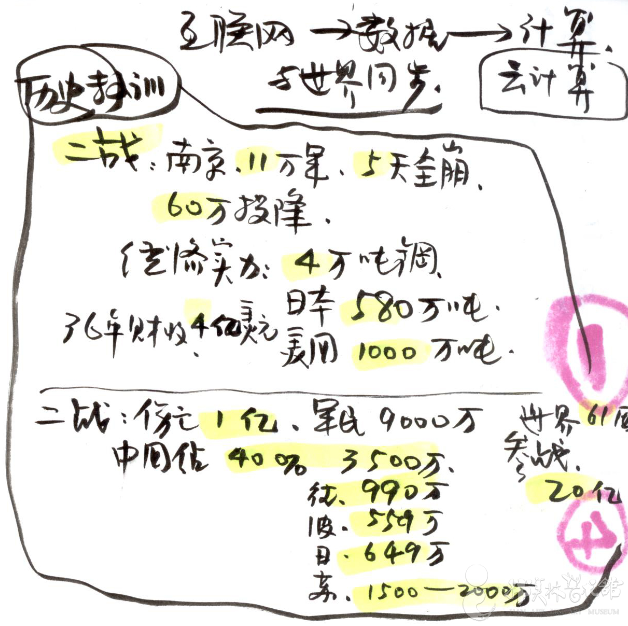 互联网→数据→计算.
与世界同步. 云计算
历史教训
二战:南京、11万军、5天全崩、
60万投降.
经济实力:4万吨钢.
日本 580万吨.
36年财收4亿美元
美国 1000万吨.
①
二战:伤亡1亿、军民9000万
中国占 40% 3500万.
世界61国
参战.
20亿
德. 990万
波. 559万
日. 649万
苏. 1500—2000万
④